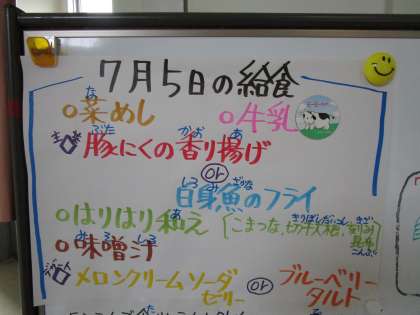 7月5日の給食
な
○菜めし ○牛乳
ぶた かお あ
豚にくの香り揚げ
or
しろ み ざかな
白身魚のフライ
あ
○はりはり和え
きりぼしだいこん きざ
こまつな、切干大根、刻み昆布
こんぶ
み そ しる
○味噌汁
デザート
メロンクリームソーダゼリー or ブルーベリータルト